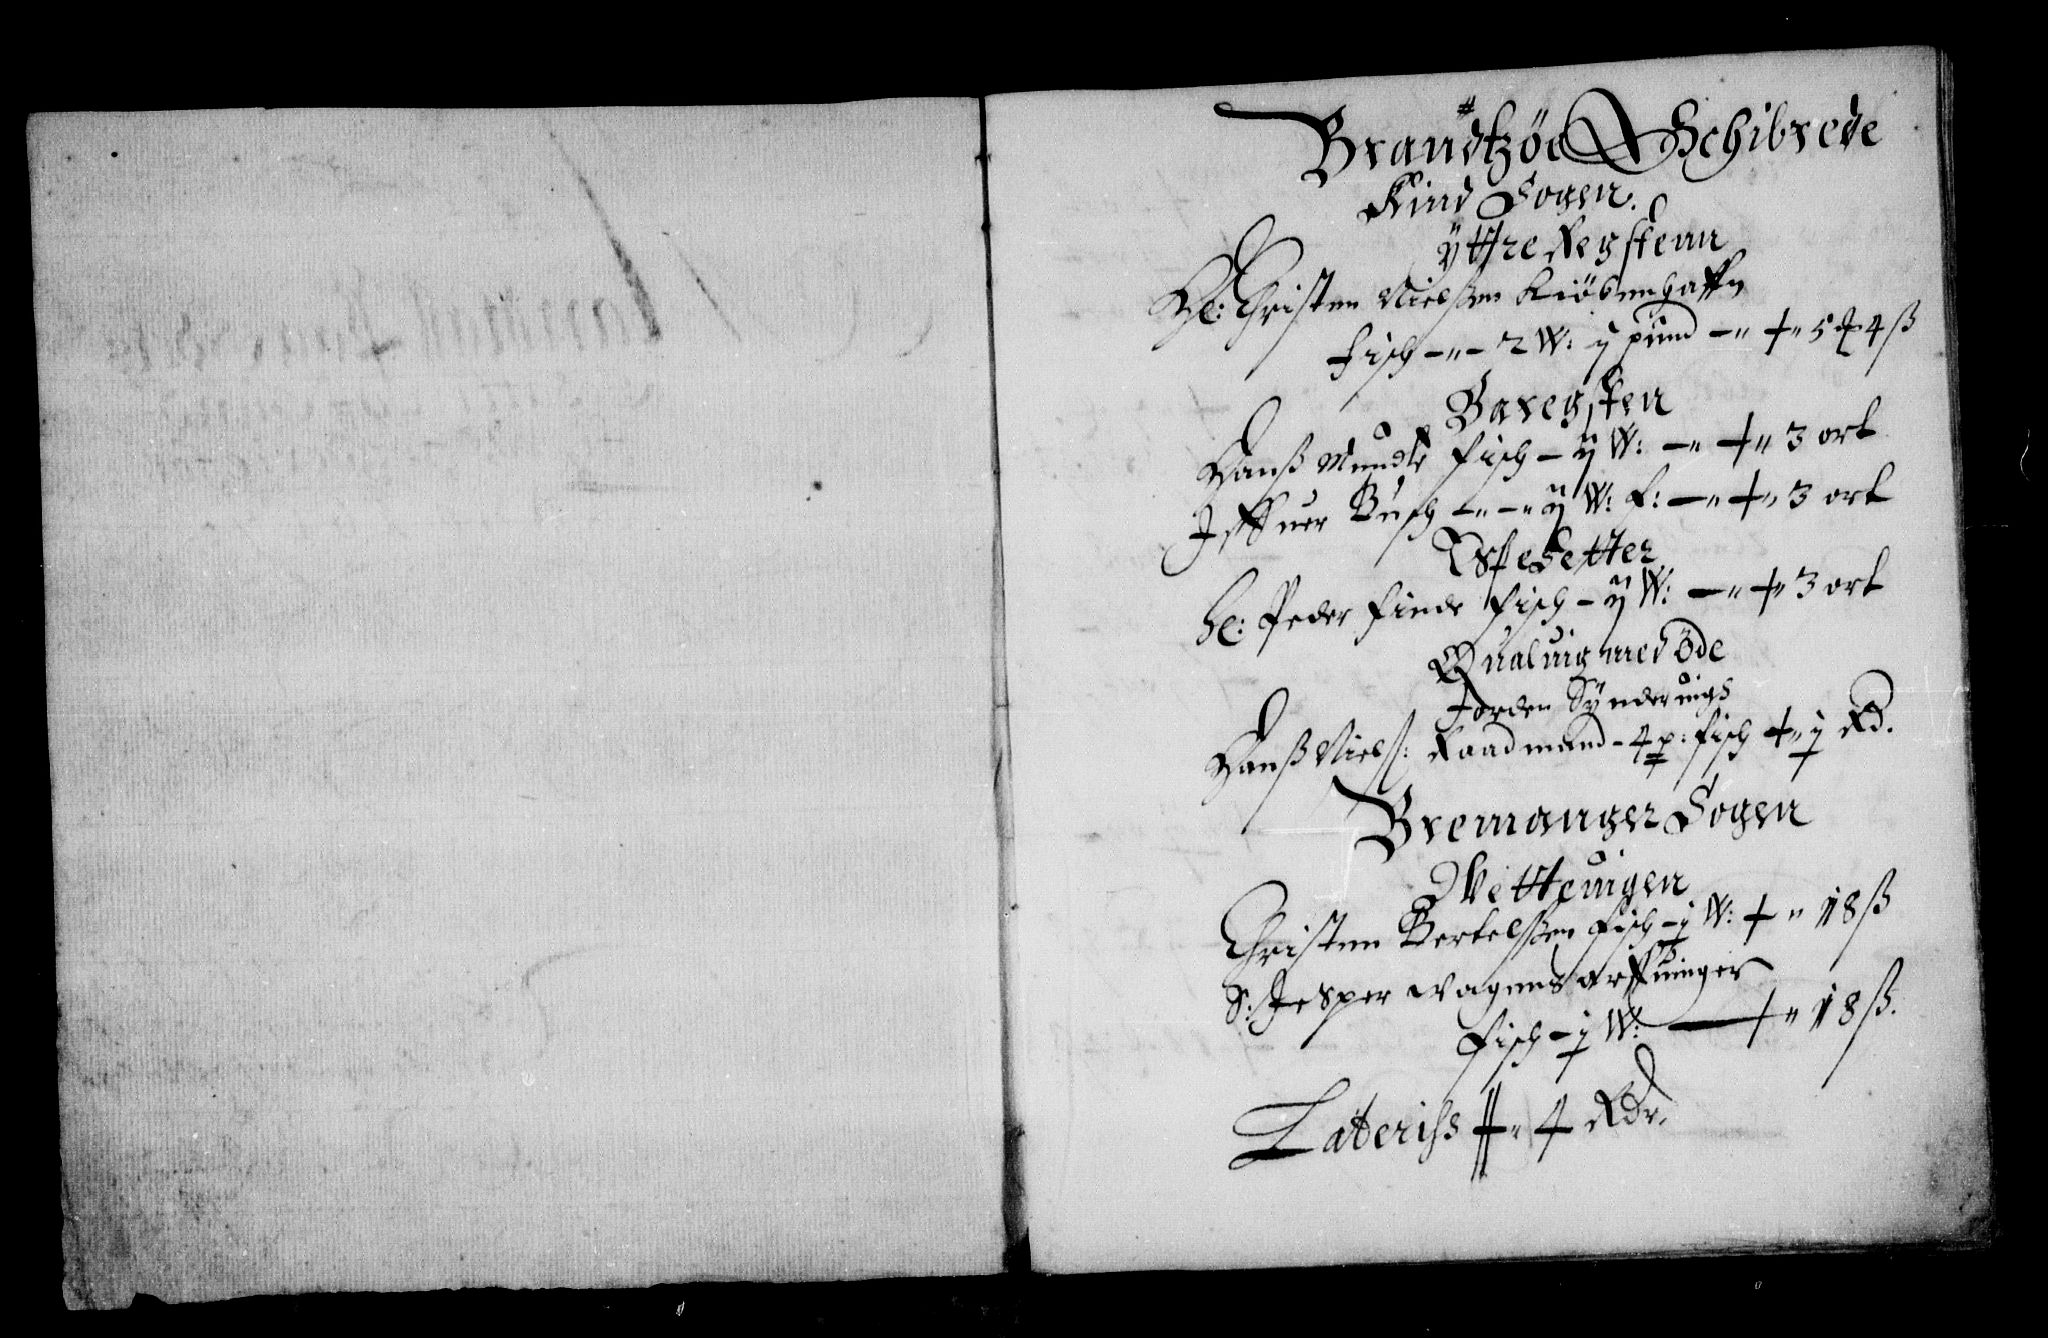 Brandtzöe Schibrede
Kind Sogen.
Yttre Regstenn
He: Christen Nielssen Kiöbenhaffn
fisch -"- 2 W: ij pund -" +" 5 ß
Baregsten
Hanß Mundte fisch - ij W: -" +" 3 ort
Iffuer Busch -"-" ij W: f: -" +" 3 ort
Espesetter
He: Peder Finde fisch - ij W: -" +" 3 ort
Qualuig med öde
Jorden Synderuigs
Hanß Niels: Raadmand - 4 p: fisch +" j Rd.
Bremanger Sogen
Vetteuigen
Christen Bertelssen fisch - j W: +" 18 ß
S: Jesper Vagens arffuinger
fisch - j W: — +" 18 ß.
Lateriss +" 4 Rdr.